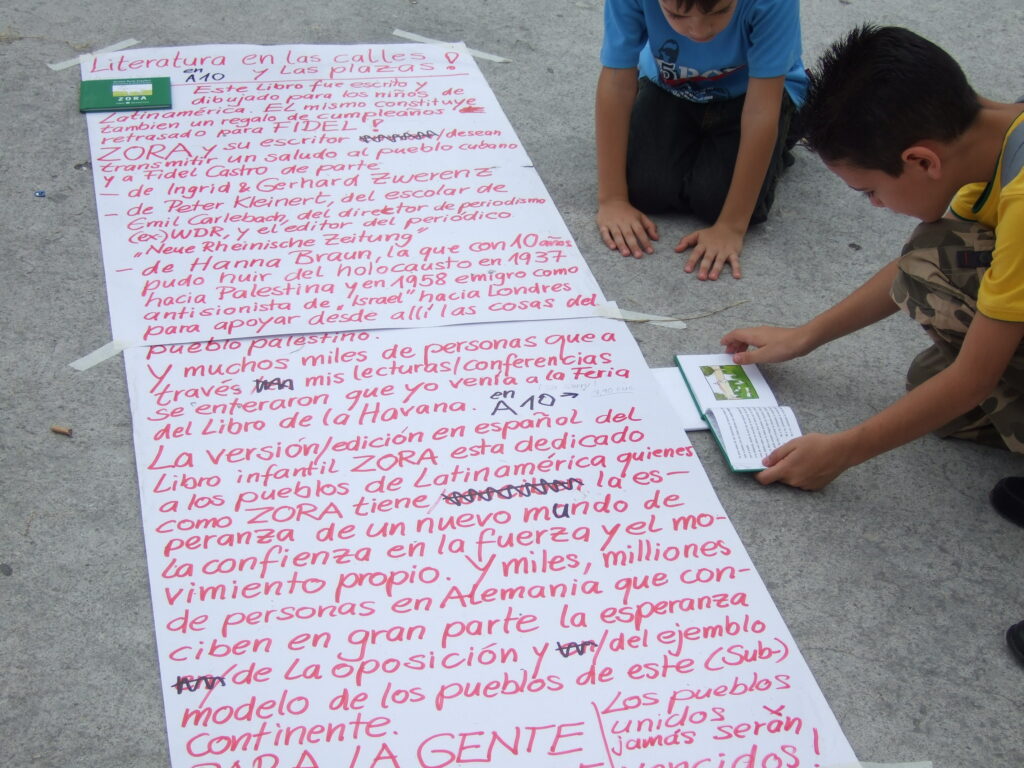 Literatura en las calles
y Las plazas!
en
A10
ZORA
Este Libro fue escrito y
dibujado para los niños de
Latinamérica. El mismo constituye
tambien un regalo de cumpleaños
retrasado para FIDEL!
ZORA y su escritor /desean
transmitir un saludo al pueblo cubano
y a Fidel Castro de parte
- de Ingrid & Gerhard Zwerenz
- de Peter Kleinert, del escolar de
Emil Carlebach, del director de periodismo
(ex) WDR, y el editor del periódico
"Neue Rheinische Zeitung"
- de Hanna Braun, la que con 10 años
pudo huir del holocausto en 1937
hacia Palestina y en 1958 emigro como
antisionista de "Israel" hacia Londres
para apoyar desde allí las cosas del
pueblo palestino.
Y muchos miles de personas que a
través mis lecturas/conferencias
se enteraron que yo venía a la Feria
del Libro de la Havana.
en
A10→
La versión/edición en español del
Libro infantil ZORA esta dedicado
a los pueblos de Latinamérica quienes
como ZORA tiene/ la es-
peranza de un nuevo mundo de
la confienza en la fuerza y el mo-
vimiento propio. Y miles, milliones
de personas en Alemania que con-
ciben en gran parte la esperanza
/de La oposición y /del ejemblo
modelo de los pueblos de este (Sub-)
continente.
PARA LA GENTE
Los pueblos
unidos
jamás serán
vencidos!